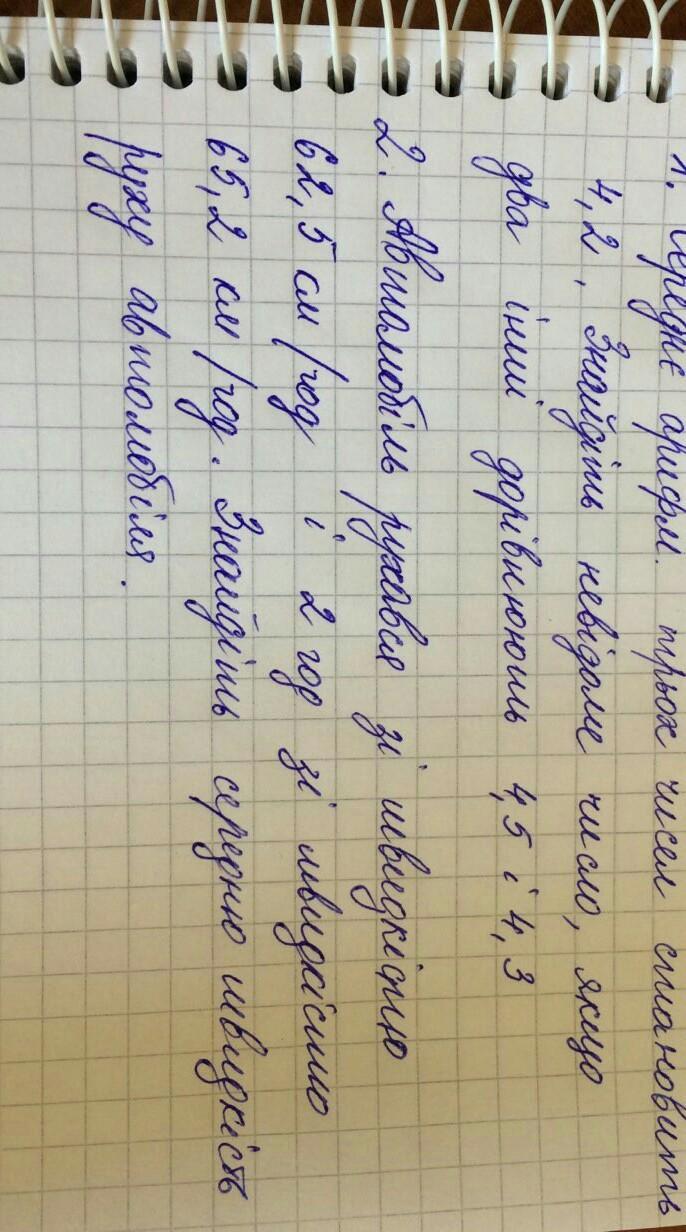 1. Середнє арифм. трьох чисел становить
4,2. Знайдіть невідоме число, якщо
два інші дорівнюють 4,5 і 4,3
2. Автомобіль рухався зі швидкістю
62,5 см/год і 2 год зі швидкістю
65,2 км/год. Знайдіть середню швидкість
руху автомобіля.